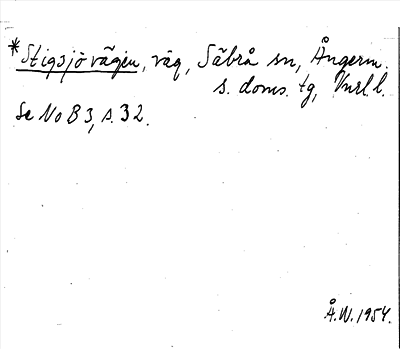 *Stigsjövägen, väg, Säbrå sn, Ångerm.
s. doms. tg, Vnrl. l.
Se No B 3, s. 32.
Å.W. 1954.